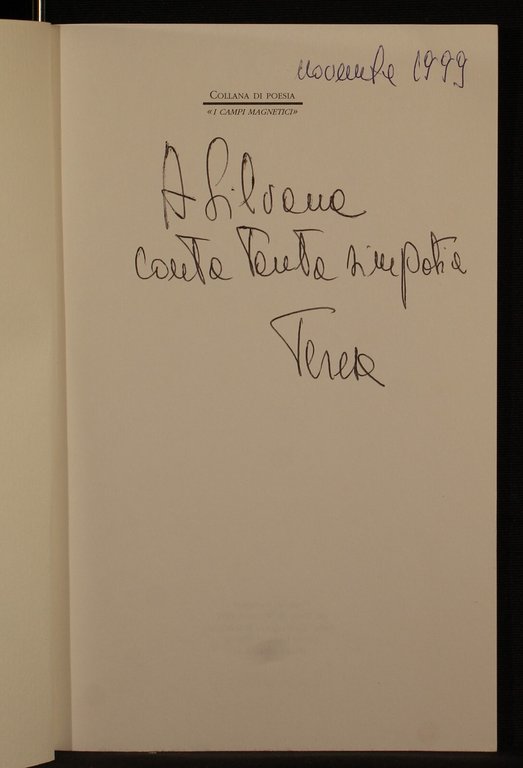 novembre 1999
COLLANA DI POESIA
«I CAMPI MAGNETICI»
A Silvana
conta Tanta simpatia
Teresa